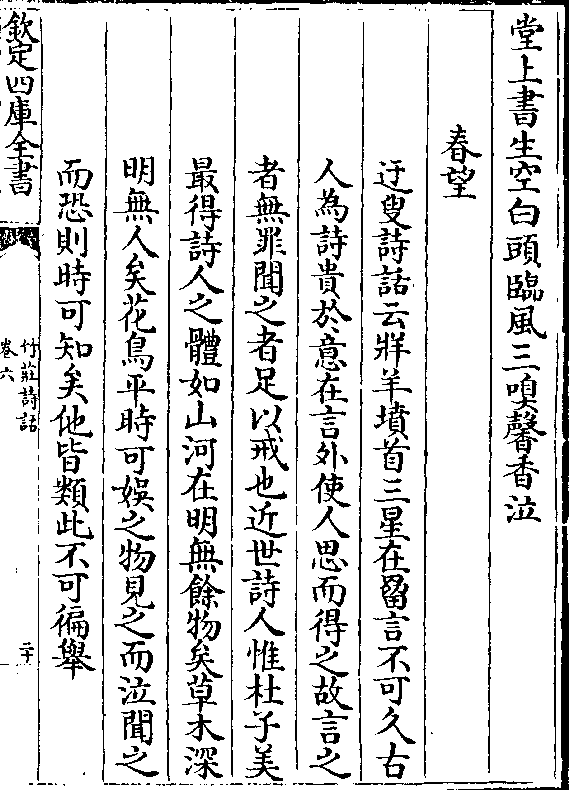 堂上書生空白頭臨風三嗅馨香泣
春望
迂叟詩話云牂羊墳首三星在罶言不可久古
人為詩貴於意在言外使人思而得之故言之
者無罪聞之者足以戒也近世詩人惟杜子美
最得詩人之體如山河在明無餘物矣草木深
明無人矣花鳥平時可娛之物見之而泣聞之
而恐則時可知矣他皆類此不可徧舉
欽定四庫全書
竹莊詩話
卷六
二十